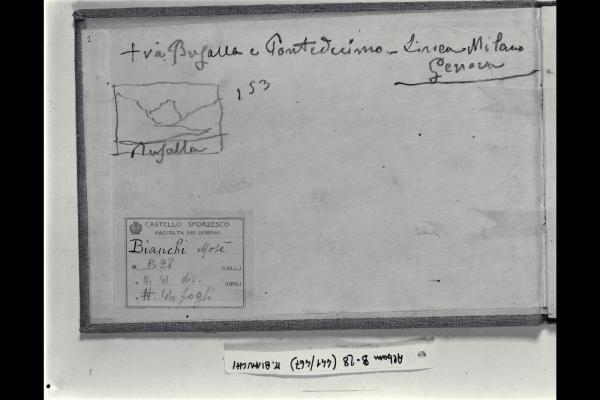 1
tra Busalla e Pontedecimo - Linea Milano
Genova
153
Busalla
CASTELLO SFORZESCO
RACCOLTA DEI DISEGNI
Bianchi Mosè
B 28 (COLL.)
N. 41 dis. (GEN.)
N. 46 fogli
Album B-28 (441/467) M. BIANCHI